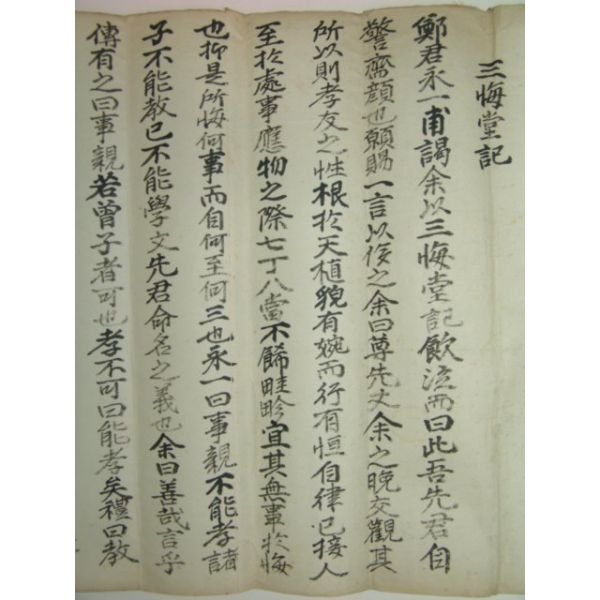 三悔堂記
鄭君永一甫謁余以三悔堂記飮泣而曰此吾先君自
警齋顔也願賜一言以後之余曰尊先丈余之晚交觀其
所以則孝友之性根於天植貌有婉而行有恒自律己接人
至於處事應物之際七丁八當不餙畦畛宜其無事於悔
也抑是所悔何事而自何至何三也永一曰事親不能孝諸
子不能教己不能學文先君命名之義也余曰善哉言乎
傳有之曰事親若曾子者可也孝不可曰能孝矣禮曰教